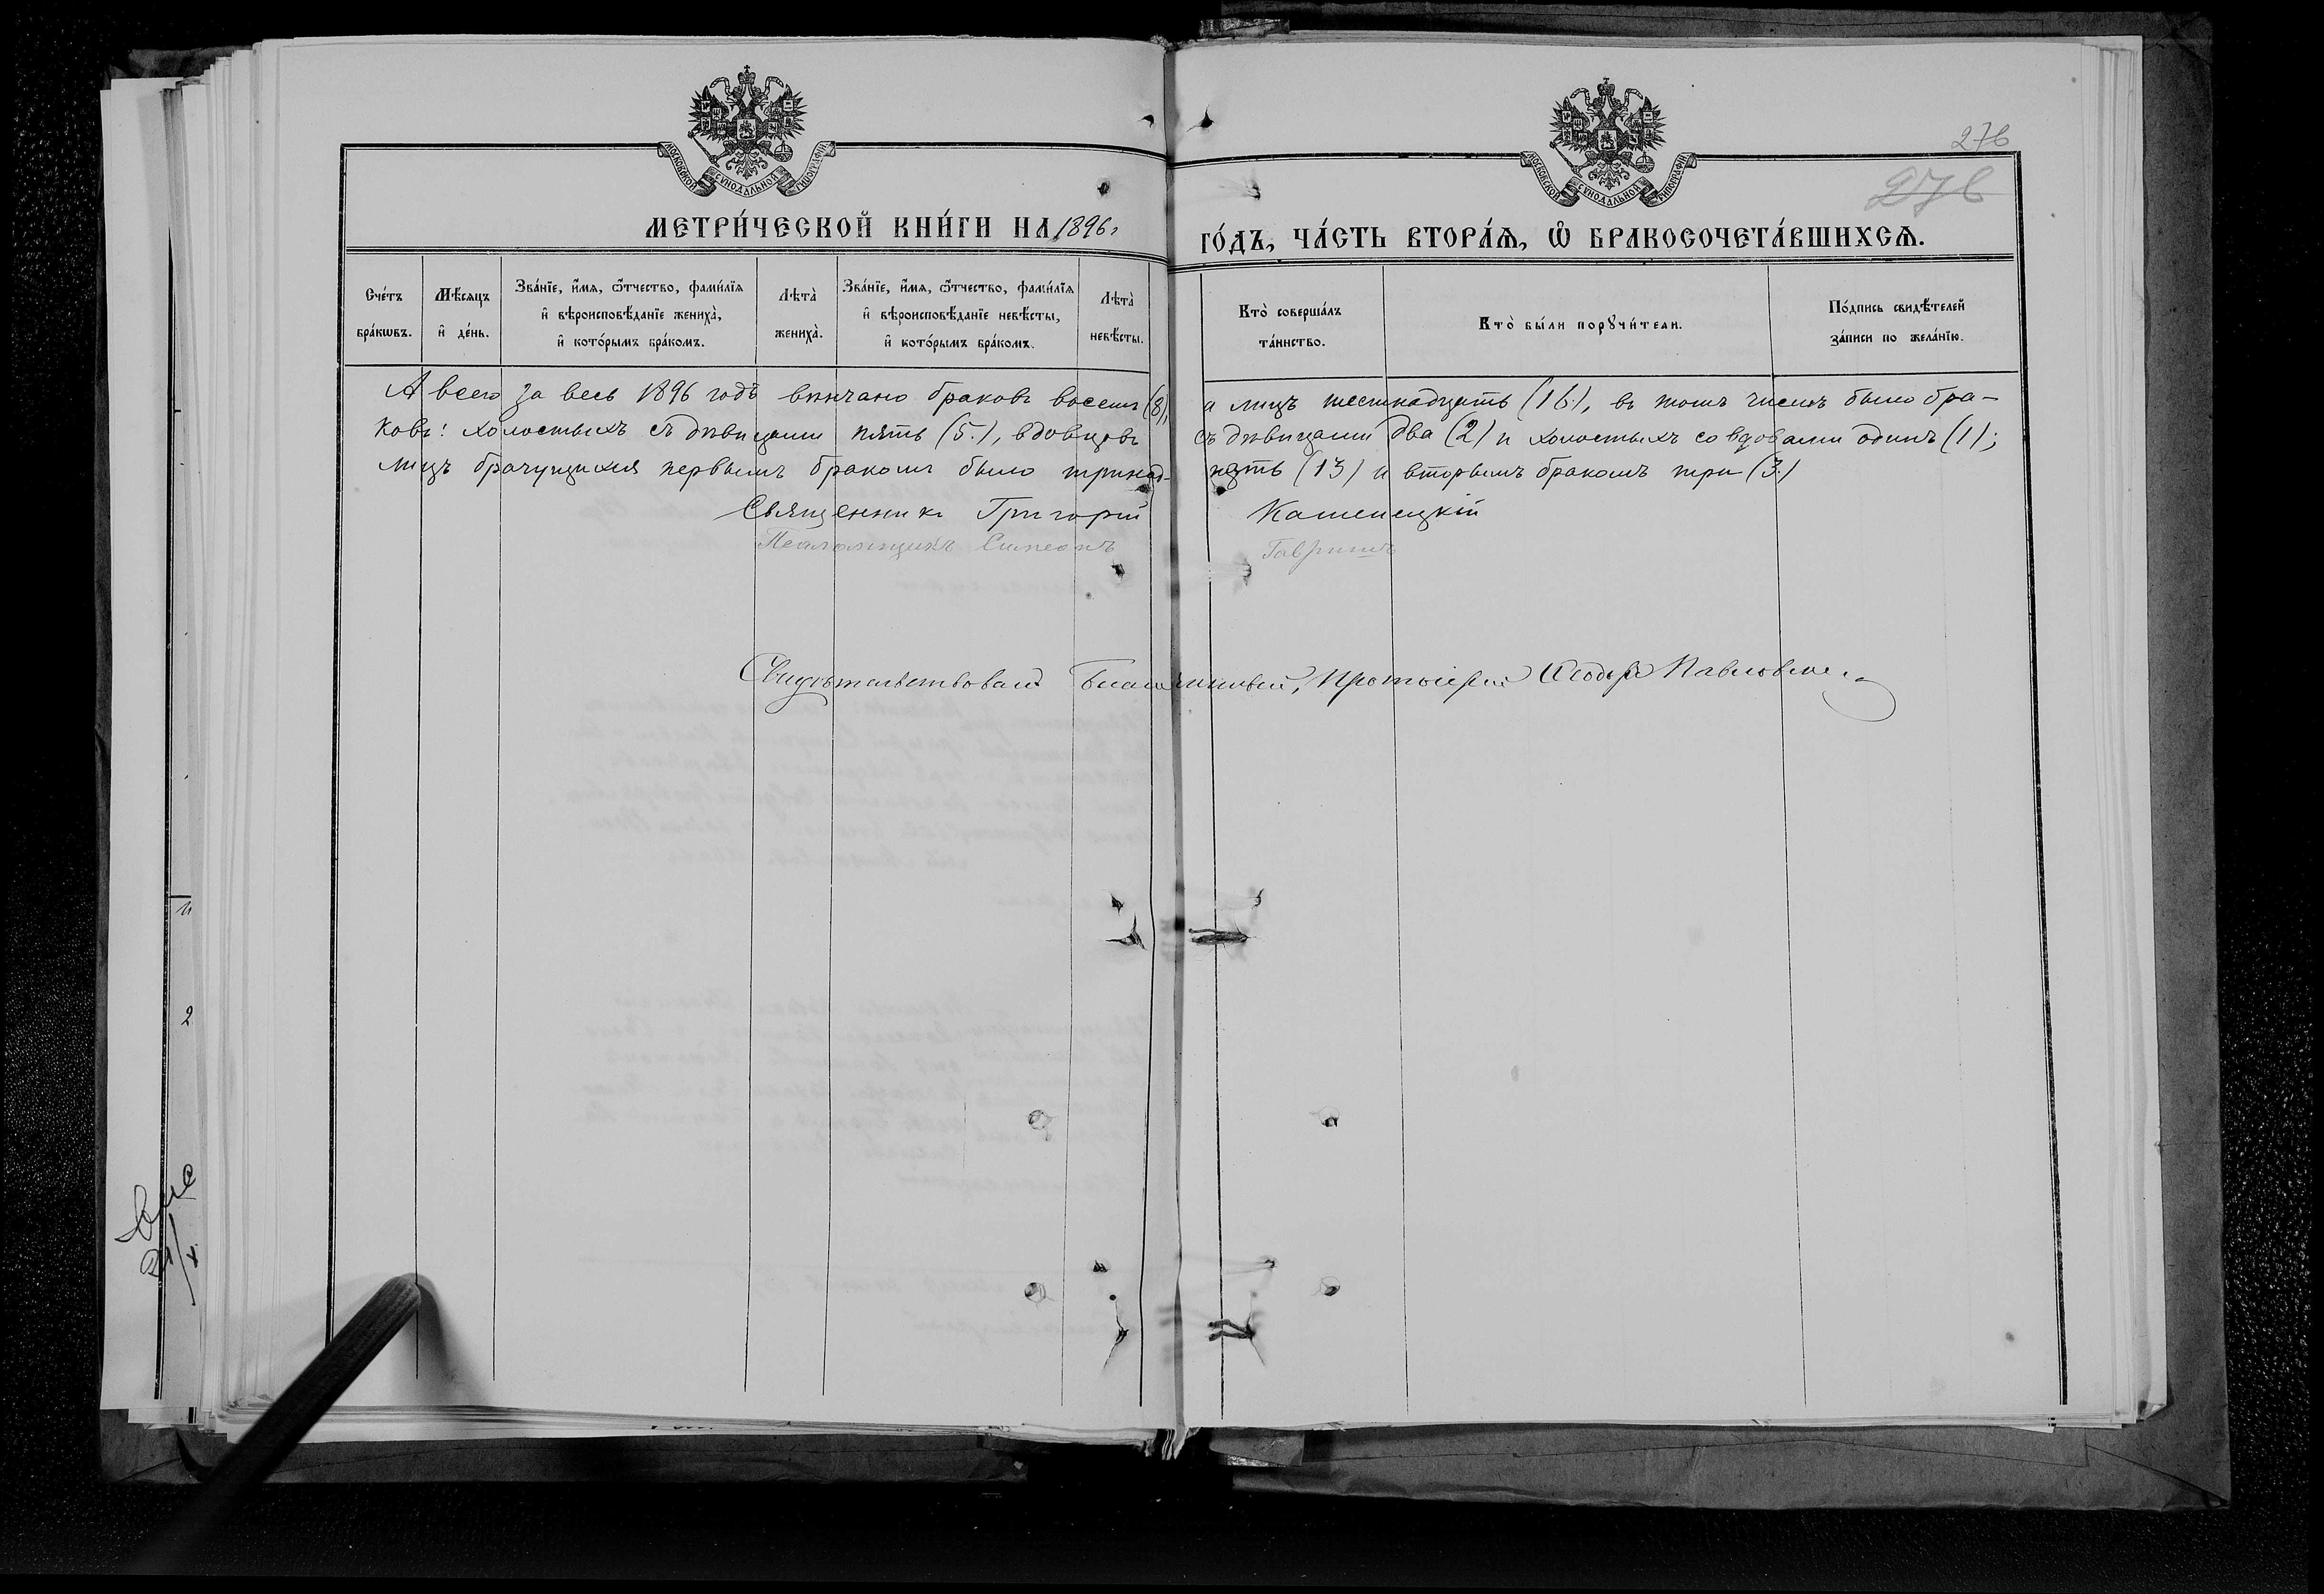 МОСКОВСКОЙ СУНОДАЛЬНОЙ ТИПОГРАФІИ
МОСКОВСКОЙ СУНОДАЛЬНОЙ ТИПОГРАФІИ
276
276
МЕТРИ́ЧЕСКОЙ КНИ́ГИ НА 1896 г.
ГО́ДЪ, ЧА́СТЬ ВТОРА́Ѧ, Ѽ БРАКОСОЧЕТА́ВШИХСѦ.
Сче́тъ бра́кѡвъ.
Мѣ́сяцъ и҆ де́нь.
Зва́нїе, и҆́мя, ѻ҆́тчество, фами́лїя и҆ вѣроисповѣ́данїе жениха̀, и҆ кото́рымъ бра́комъ.
Лѣта̀ жениха̀.
Зва́нїе, и҆́мя, ѻ҆́тчество, фами́лїя и҆ вѣроисповѣ́данїе невѣ́сты, и҆ кото́рымъ бра́комъ.
Лѣта̀ невѣ́сты.
Кто̀ соверша́лъ та́инство.
Кто̀ бы́ли порꙋчи́тели.
По́дпись свидѣ́телей за́писи по жела́нїю.
А всего за весь 1896 годъ вѣнчано браковъ восемь (8), а лицъ шестнадцать (16), въ томъ числѣ было бра-
ковъ: холостыхъ съ дѣвицами пять (5.), вдовцовъ съ дѣвицами два (2) и холостыхъ со вдовами одинъ (1);
лицъ брачущихся первымъ бракомъ было тринад- цать (13) и вторымъ бракомъ три (3.)
Священникъ Григорій Каменецкій
Псаломщикъ Симеонъ Гавришъ
Свидѣтельствовалъ Благочинный, Протоіерей Ѳеодоръ Павловичъ.
11
2